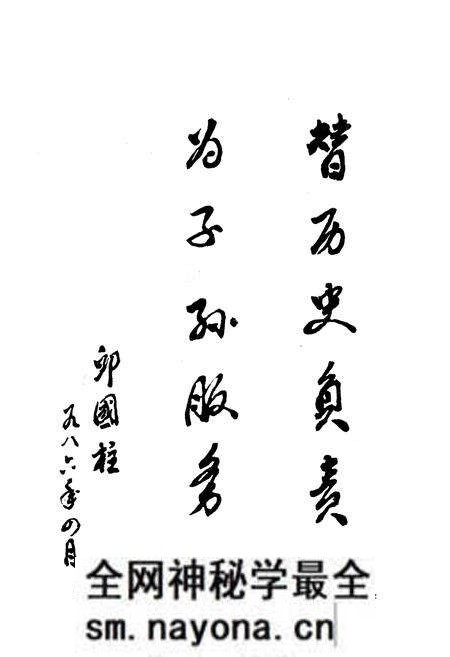 替历史负责
为子孙服务
邱國柱
一九八六年四月
全网神秘学最全
sm.nayona.cn